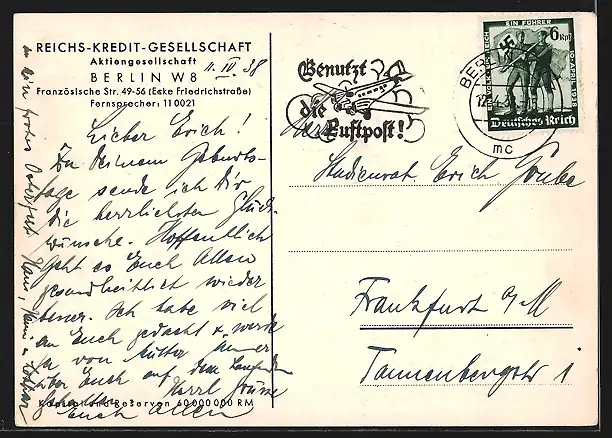 REICHS-KREDIT-GESELLSCHAFT
Aktiengesellschaft
BERLIN W8
Französische Str. 49-56 (Ecke Friedrichstraße)
Fernsprecher: 11 0021
11. IV. 38
Lieber Erich!
Zu Deinem Geburts-
tage sende ich Dir
die herzlichsten Glück-
wünsche. Hoffentlich
geht es Euch Allen
gesundheitlich wieder
besser. Ich habe viel
an Euch gedacht u. werde
ja von Mutter immer
über Euch auf dem Laufenden
gehalten. Herzl. Grüsse
Euch Allen
Kapital und Reserven 60 000 000 RM
frohes Osterfest Hans,
Benutzt
die
Luftpost!
BERLIN
mc
EIN VOLK EIN REICH
EIN FÜHRER
10. APRIL 1938
6 Rpf
Deutsches Reich
Herrn
Studienrat Erich Grube
Frankfurt a/M
Tannenbergstr 1